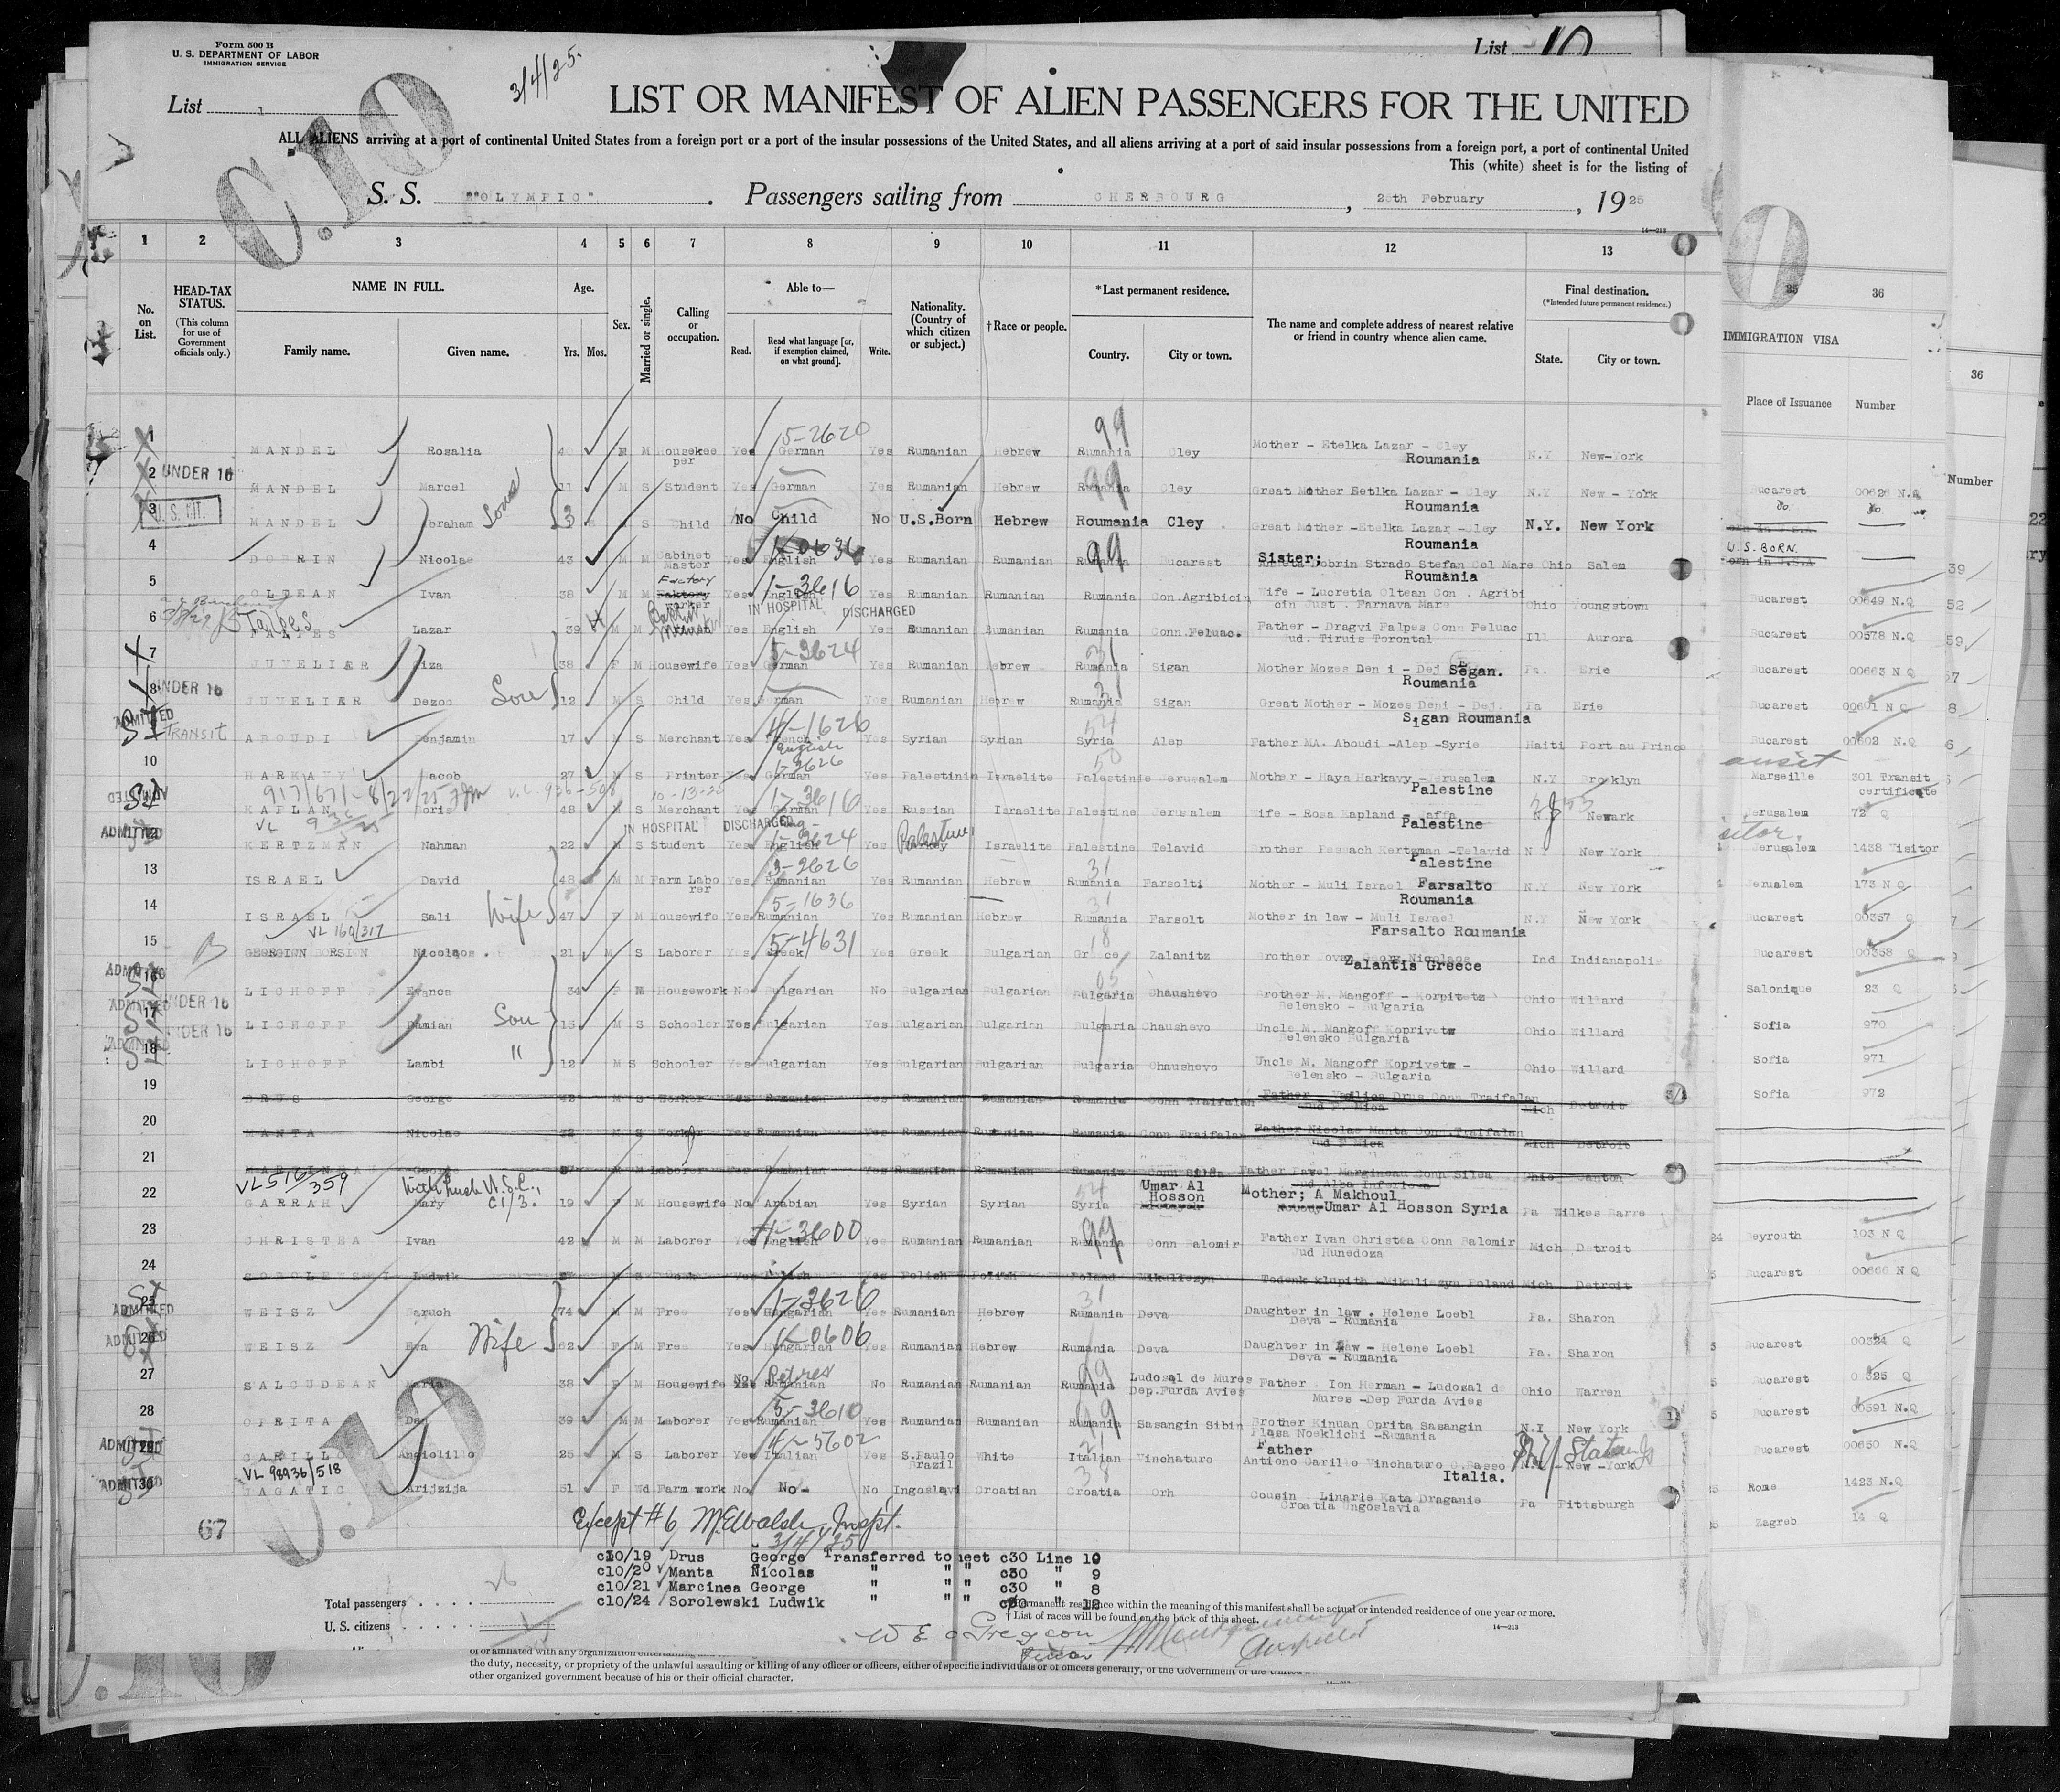 Form 500 B
U. S. DEPARTMENT OF LABOR
IMMIGRATION SERVICE
3/4/25.
List 10
List
C.10
LIST OR MANIFEST OF ALIEN PASSENGERS FOR THE UNITED
ALL ALIENS arriving at a port of continental United States from a foreign port or a port of the insular possessions of the United States, and all aliens arriving at a port of said insular possessions from a foreign port, a port of continental United
This (white) sheet is for the listing of
S. S. "OLYMPIC". Passengers sailing from CHERBOURG, 25th February, 1925
14—213
1 2 3 4 5 6 7 8 9 10 11 12 13
No. on List.
HEAD-TAX STATUS.
(This column for use of Government officials only.)
NAME IN FULL.
Family name. Given name.
Age.
Yrs. Mos.
Sex.
Married or single.
Calling or occupation.
Able to—
Read. Read what language [or, if exemption claimed, on what ground]. Write.
Nationality. (Country of which citizen or subject.)
†Race or people.
*Last permanent residence.
Country. City or town.
The name and complete address of nearest relative or friend in country whence alien came.
Final destination.
(*Intended future permanent residence.)
State. City or town.
35 36
IMMIGRATION VISA
Place of Issuance Number
36
Number
1 MANDEL Rosalia 40 M Housekeeper Yes German 5-2620 Yes Rumanian Hebrew Rumania 99 Cley Mother - Etelka Lazar - Cley Roumania N.Y New-York
2 UNDER 16 MANDEL Marcel 11 M S Student Yes German Yes Rumanian Hebrew Rumania 99 Cley Great Mother Eetlka Lazar - Cley Roumania N.Y New - York Bucarest 00626 N.Q
3 U.S. CIT. MANDEL Abraham Sons 3 S Child No Child No U.S.Born Hebrew Roumania Cley Great Mother -Etelka Lazar -Cley Roumania N.Y. New York do do
4 DOBRIN Nicolae 43 M M Cabinet Master Yes English Yes Rumanian Rumanian Rumania 99 Bucarest Sister; Dobrin Strado Stefan Del Mare Roumania Ohio Salem U.S. BORN. Born in U.S.A
5 OLTEAN Ivan 38 M M Factory Yes English 1-3616 Yes Rumanian Rumanian Rumania Con.Agribicin Wife - Lucretia Oltean Con . Agribicin Just . Farnava Mare Ohio Youngstown Bucarest 00649 N.Q
IN HOSPITAL DISCHARGED
6 Lazar 39 M M Yes English Yes Rumanian Rumanian Rumania Conn.Feluac. Father - Dragvi Falpes Conn Feluac ud. Tiruis Torontal Ill Aurora Bucarest 00578 N.Q
7 JUVELIER Liza 38 F M Housewife Yes German 5-3624 Yes Rumanian Hebrew Rumania 31 Sigan Mother Mozes Deni - Dej Segan. Roumania Pa. Erie Bucarest 00663 N.Q
8 UNDER 16 JUVELIER Dezoo Son 12 M S Child Yes German Yes Rumanian Hebrew Rumania 31 Sigan Great Mother - Mozes Deni - Dej. Sigan Roumania Pa Erie Bucarest 00601 N Q
ADMITTED TRANSIT ABOUDI Benjamin 17 M S Merchant Yes French English 4-1626 Yes Syrian Syrian Syria 54 Alep Father MA. Aboudi -Alep -Syrie Haiti Port au Prince Bucarest 00602 N.Q
10 HARKAVY Jacob 27 M S Printer Yes German 1-2626 Yes Palestinia Israelite Palestinie 50 Jerusalem Mother - Haya Harkavy -Jerusalem Palestine N.Y Brooklyn Marseille 301 Transit certificate
ADMITTED KAPLAN Boris 48 M S Merchant Yes German 1-3610 Yes Russian Israelite Palestine Jerusalem Wife - Rosa Kapland - Jaffa Palestine Newark Jerusalem 72 Q
IN HOSPITAL DISCHARGED
ADMITTED 12 KERTZMAN Nahman 22 M S Student Yes English Yes Palestine Israelite Palestine Telavid Brother Pessach Kertzman -Telavid Palestine N Y New York Jerusalem 1438 Visitor
13 ISRAEL David 48 M M Farm Laborer Yes Rumanian 3-2626 Yes Rumanian Hebrew Rumania 31 Farsolti Mother - Muli Israel Farsalto Roumania N.Y New York Jerusalem 173 N Q
14 ISRAEL Sali Wife 47 F M Housewife Yes Rumanian 5-1636 Yes Rumanian Hebrew Rumania 31 Farsolt Mother in law - Muli Israel Farsalto Roumania N.Y New York Bucarest 00357 Q
VL 160/317
15 GEORGION DORSION Nicolaos. 21 M S Laborer Yes Greek 5-4631 Yes Greek Bulgarian Greece 18 Zalanitz Brother Nicolaos Zalantis Greece Ind Indianapolis Bucarest 00358 Q
ADMITTED 16 LICHOFF Evanca 34 F M Housework No Bulgarian No Bulgarian Bulgarian Bulgaria 05 Chaushevo Brother M. Mangoff - Korpivetz Selensko - Bulgaria Ohio Willard Salonique 23 Q
ADMITTED UNDER 16 17 LICHOFF Damian Son 15 M S Schooler Yes Bulgarian Yes Bulgarian Bulgarian Bulgaria Chaushevo Uncle M. Mangoff Koprivetz Selensko Bulgaria Ohio Willard Sofia 970
ADMITTED UNDER 16 18 LICHOFF Lambi " 12 M S Schooler Yes Bulgarian Yes Bulgarian Bulgarian Bulgaria Chaushevo Uncle M. Mangoff Koprivetz - Selensko - Bulgaria Ohio Willard Sofia 971
19 DRUS George 42 M S Worker Yes Rumanian Yes Rumanian Rumanian Rumania Conn Traifalan Father - Drus Conn Traifalan Mich Detroit Sofia 972
20 MANTA Nicolae 32 M S Worker Yes Rumanian Yes Rumanian Rumanian Rumania Conn Traifalan Father Nicolae Manta Conn. Traifalan Jud F Mica Mich Detroit
21 Georg 37 M M Laborer Yes Rumanian Yes Rumanian Rumanian Rumania Conn Silea Father Pavel Margineau Conn Silea Jud Alba Inferiora Ohio Canton
VL 516/359 with husb U.S.C., C1/3.
22 GARRAH Mary 19 F M Housewife No Arabian Yes Syrian Syrian Syria 54 Umar Al Hosson Mother; A Makhoul Umar Al Hosson Syria Pa Wilkes Barre
23 CHRISTEA Ivan 42 M M Laborer Yes English 4-3600 Yes Rumanian Rumanian Rumania 99 Conn Balomir Father Ivan Christea Conn Balomir Jud Hunedoza Mich Detroit Beyrouth 103 N Q
24 SOROLEWSKI Ludwik M S Yes Polish Yes Polish Polish Poland Mikuliczyn Todenk klupith -Mikuliszyn Poland Mich Detroit Bucarest 00666 N Q
ADMITTED 25 WEISZ Baruch 74 M M Free Yes Hungarian 1-3626 Yes Rumanian Hebrew Rumania 31 Deva Daughter in law. Helene Loebl Deva - Rumania Pa. Sharon
ADMITTED 26 WEISZ Eva Wife 62 F M Free Yes Hungarian 1-0606 Yes Rumanian Hebrew Rumania Deva Daughter in Law - Helene Loebl Deva - Rumania Pa. Sharon Bucarest 00324 Q
27 SALCUDEAN Maria 38 F M Housewife No Rumanian No Rumanian Rumanian Rumania 99 Ludosal de Mures Dep.Furda Avies Father Ion Herman - Ludosal de Mures -Dep Furda Avies Ohio Warren Bucarest 0 325 Q
28 OPRITA Dan 39 M M Laborer Yes Rumanian 5-3610 Yes Rumanian Rumanian Rumania 99 Sasangin Sibin Brother Kinuan Oprita Sasangin Plasa Noeklichi -Rumania N.Y New York Bucarest 00591 N.Q
ADMITTED 29 CARILLO Angiolillo 25 M S Laborer Yes Italian 4-5602 Yes S.Paulo Brazil White Italian 21 Vinchaturo Father Antiono Carillo Vinchaturo C.Basso Italia. New -York Bucarest 00650 N.Q
VL 98936/518
ADMITTED 30 JAGATIC Arijzija 51 F Wd Farm work No No- No Ingoslavi Croatian Croatia 38 Orh Cousin Linarie Kata Draganie Croatia Ungoslavia Pa Pittsburgh Rome 1423 N.Q
Zagreb 14 Q
67
C.10
Except #6 McWalsh Inspt.
3/4/25
c10/19 Drus George Transferred to sheet c30 Line 10
c10/20 Manta Nicolas " " " c30 " 9
c10/21 Marcinea George " " " c30 " 8
c10/24 Sorolewski Ludwik " " " c30 " 12
Total passengers . . . .
U. S. citizens . . . . . .
*Permanent residence within the meaning of this manifest shall be actual or intended residence of one year or more.
† List of races will be found on the back of this sheet.
14—213
the duty, necessity, or propriety of the unlawful assaulting or killing of any officer or officers, either of specific individuals or of officers generally, of the Government of the United
other organized government because of his or their official character.